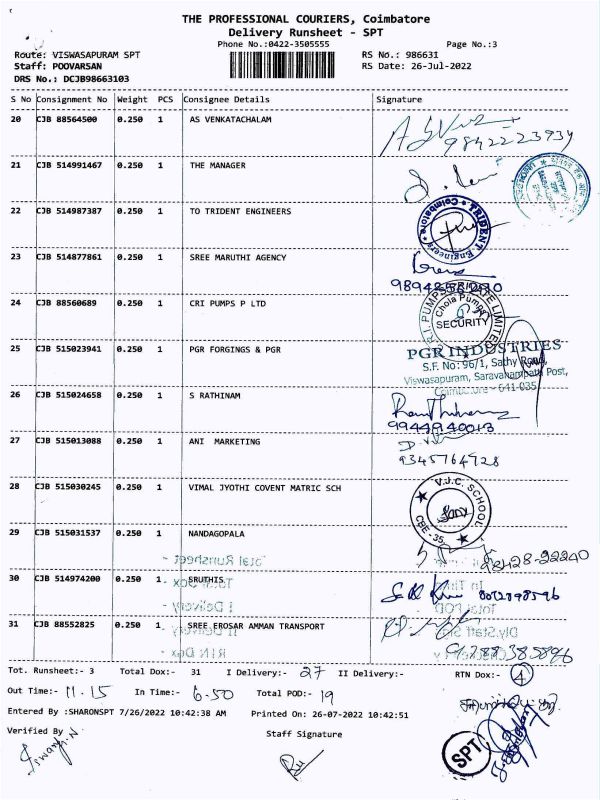 THE PROFESSIONAL COURIERS, Coimbatore
Delivery Runsheet - SPT
Phone No.:0422-3505555
Page No.:3
Route: VISWASAPURAM SPT
RS No.: 986631
Staff: POOVARSAN
RS Date: 26-Jul-2022
DRS No.: DCJB98663103
S No Consignment No Weight PCS Consignee Details Signature
20 CJB 88564500 0.250 1 AS VENKATACHALAM
9842223934
21 CJB 514991467 0.250 1 THE MANAGER
22 CJB 514987387 0.250 1 TO TRIDENT ENGINEERS
TRIDENT Engineers Coimbatore
23 CJB 514877861 0.250 1 SREE MARUTHI AGENCY
24 CJB 88560689 0.250 1 CRI PUMPS P LTD
C.R.I. PUMPS PRIVATE LIMITED
Chola Pumps
SECURITY
25 CJB 515023941 0.250 1 PGR FORGINGS & PGR
PGR INDUSTRIES
S.F. No: 96/1, Sathy Road,
Viswasapuram, Saravanampatti Post,
Coimbatore - 641 035
26 CJB 515024658 0.250 1 S RATHINAM
9944940013
27 CJB 515013088 0.250 1 ANI MARKETING
9345764928
28 CJB 515030245 0.250 1 VIMAL JYOTHI COVENT MATRIC SCH
V.J.C. SCHOOL
CBE - 35
29 CJB 515031537 0.250 1 NANDAGOPALA
98428-22240
30 CJB 514974200 0.250 1 SRUTHIS
31 CJB 88552825 0.250 1 SREE EROSAR AMMAN TRANSPORT
Tot. Runsheet:- 3 Total Dox:- 31 I Delivery:- 27 II Delivery:- RTN Dox:- 4
Out Time:- 11.15 In Time:- 6.50 Total POD:- 19
Entered By :SHARONSPT 7/26/2022 10:42:38 AM Printed On: 26-07-2022 10:42:51
Verified By Staff Signature
SPT